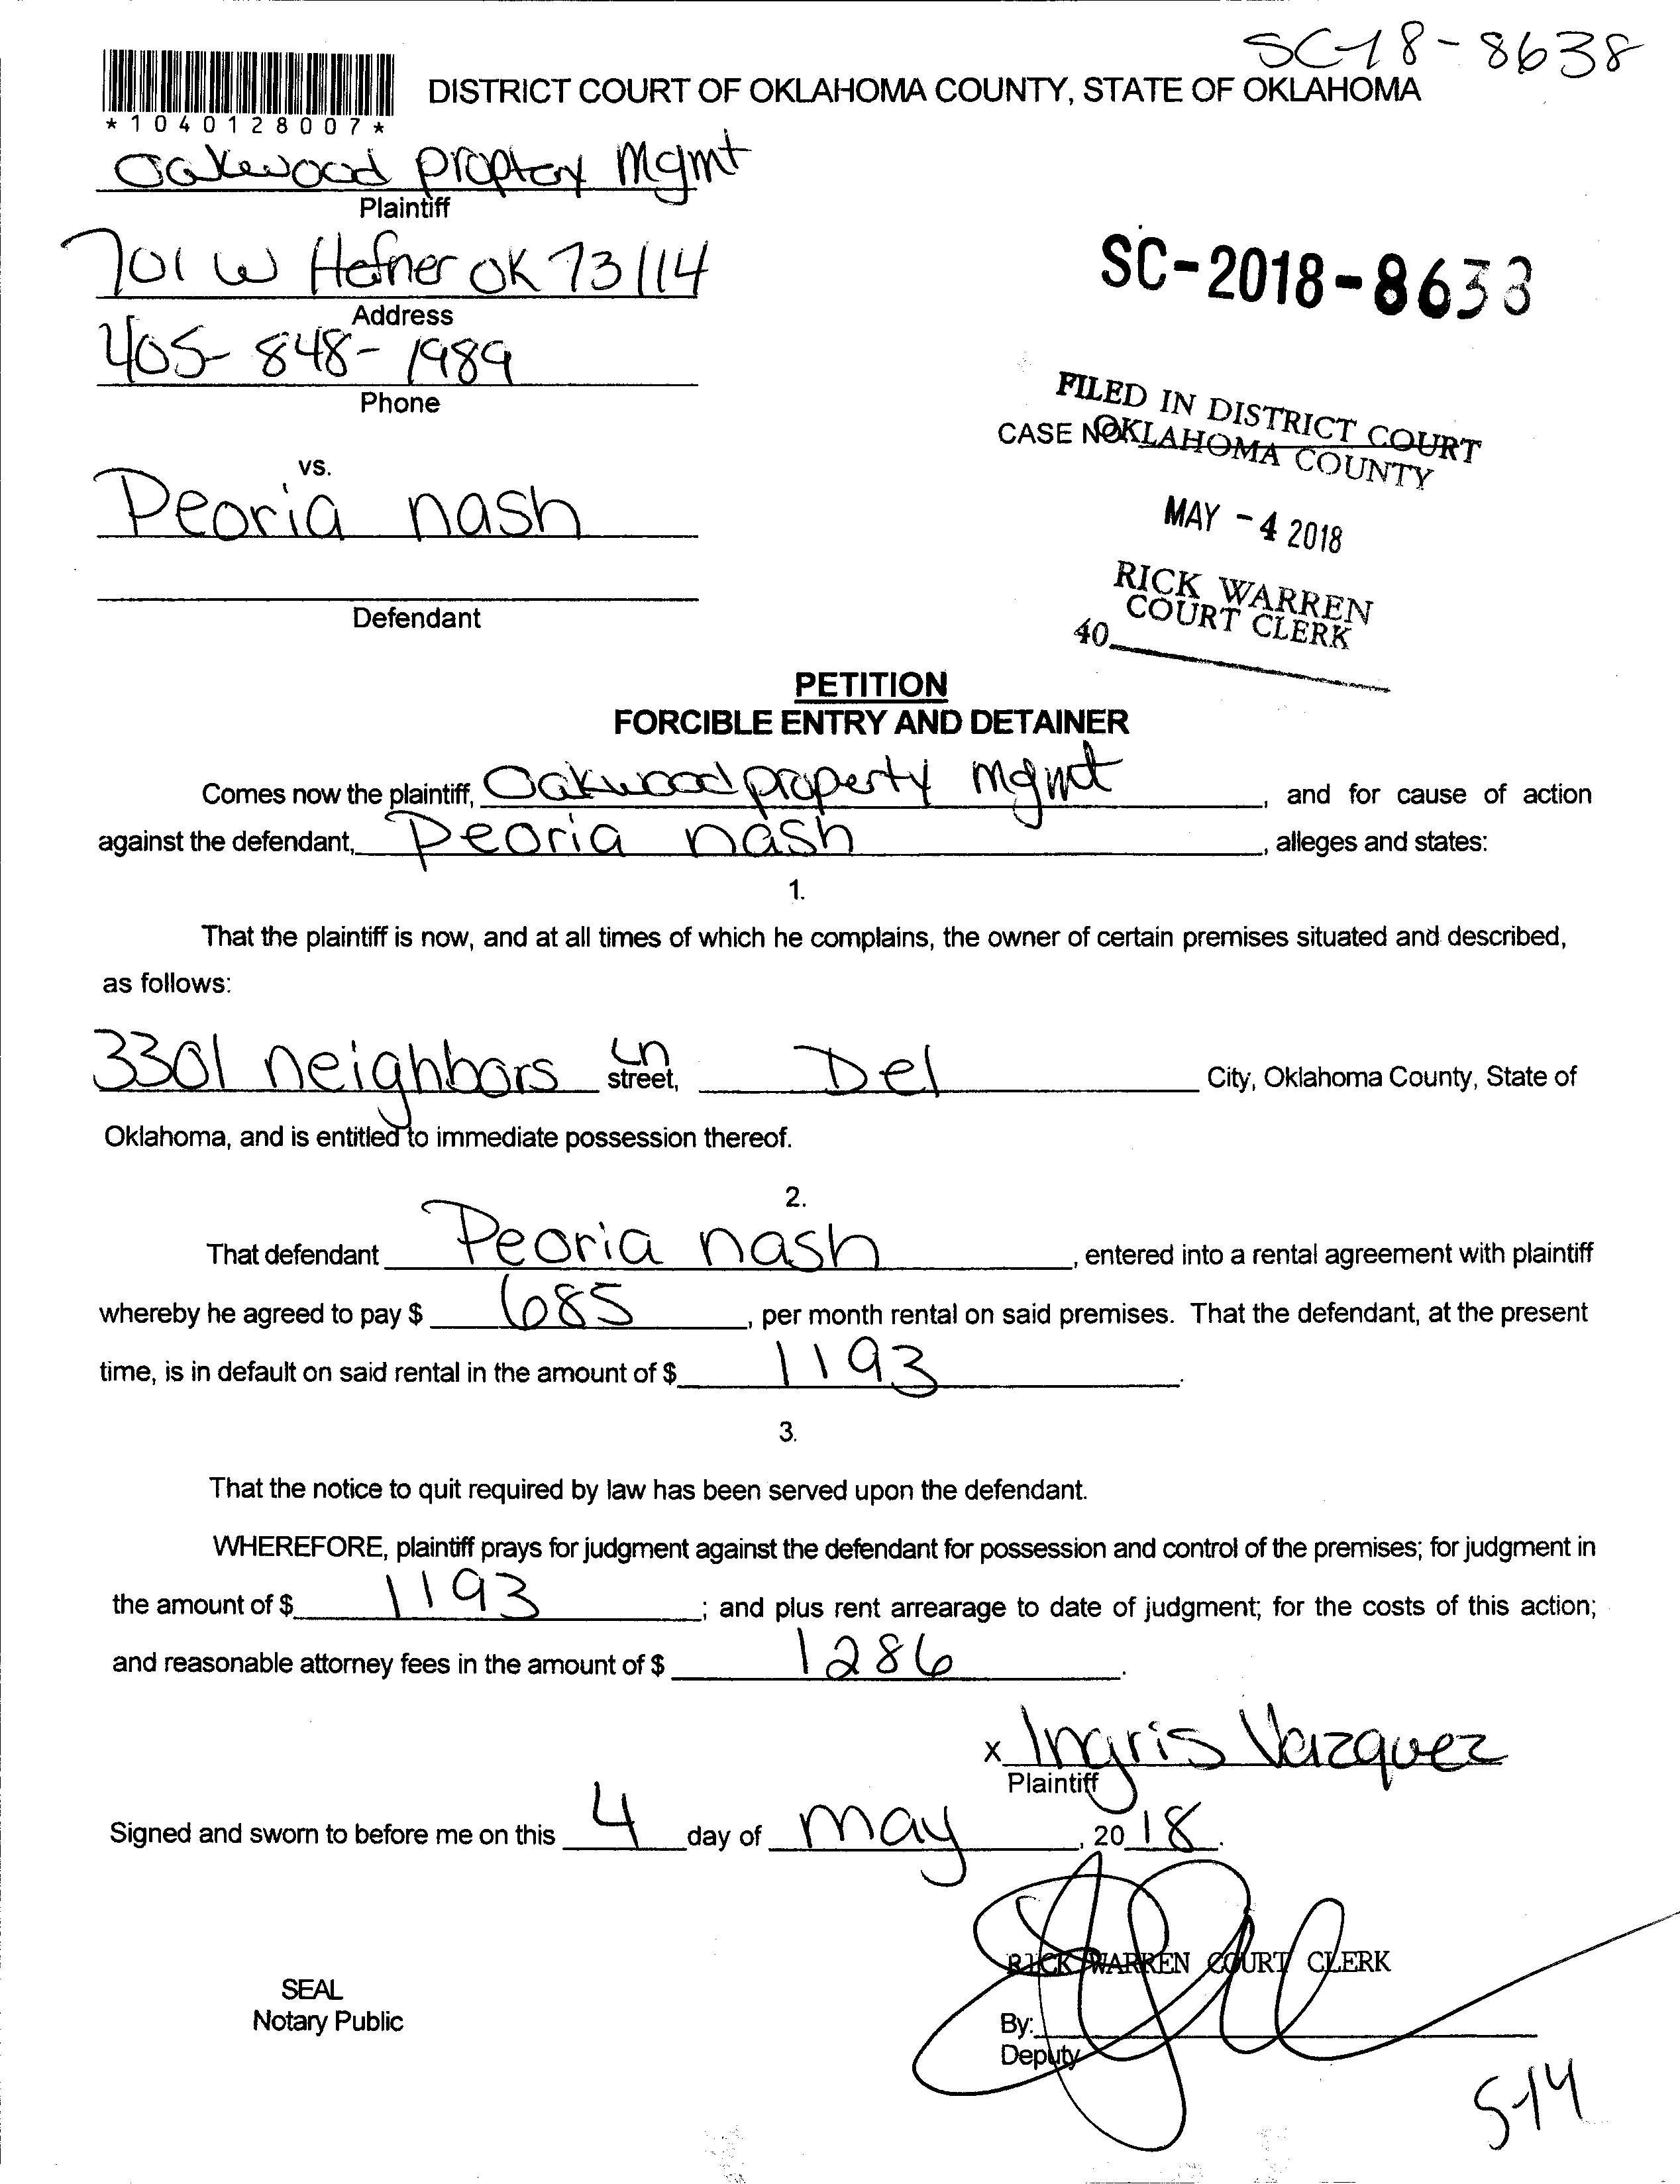 SC-18-8638
*1040128007*
DISTRICT COURT OF OKLAHOMA COUNTY, STATE OF OKLAHOMA
Oakewood proptey Mgmt
Plaintiff
701 W Hefner OK 73114
Address
405-848-1989
Phone
SC-2018-8638
FILED IN DISTRICT COURT
OKLAHOMA COUNTY
CASE NO.
MAY -4 2018
RICK WARREN
COURT CLERK
40
vs.
Peoria nash
Defendant
PETITION
FORCIBLE ENTRY AND DETAINER
Comes now the plaintiff, Oakwood property Mgmt, and for cause of action
against the defendant, Peoria nash, alleges and states:
1.
That the plaintiff is now, and at all times of which he complains, the owner of certain premises situated and described,
as follows:
3301 neighbors Ln street, Del City, Oklahoma County, State of
Oklahoma, and is entitled to immediate possession thereof.
2.
That defendant Peoria nash, entered into a rental agreement with plaintiff
whereby he agreed to pay $ 685, per month rental on said premises. That the defendant, at the present
time, is in default on said rental in the amount of $ 1193.
3.
That the notice to quit required by law has been served upon the defendant.
WHEREFORE, plaintiff prays for judgment against the defendant for possession and control of the premises; for judgment in
the amount of $ 1193; and plus rent arrearage to date of judgment; for the costs of this action;
and reasonable attorney fees in the amount of $ 1286.
x Ingris Vazquez
Plaintiff
Signed and sworn to before me on this 4 day of may, 2018.
RICK WARREN COURT CLERK
SEAL
Notary Public
By:
Deputy
5-14